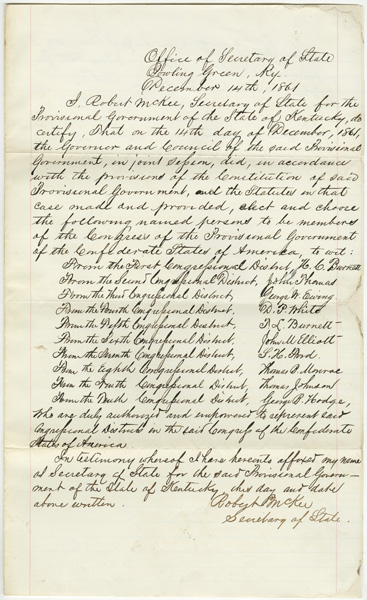 Office of Secretary of State
Bowling Green, Ky.
December 14th, 1861
I, Robert McKee, Secretary of State for the
Provisional Government of the State of Kentucky, do
certify, That on the 14th day of December, 1861,
the Governor and Council of the said Provisional
Government, in joint Session, did, in accordance
with the provisions of the Constitution of said
Provisional Government, and the Statutes in that
case made and provided, elect and choose
the following named persons to be members
of the Congress of the Provisional Government
of the Confederate States of America to wit:
From the First Congressional District, H. C. Burnett
From the Second Congressional District, John Thomas
From the Third Congressional District, George W. Ewing
From the Fourth Congressional District, D. P. White
From the Fifth Congressional District, T. L. Burnett
From the Sixth Congressional District, John M. Elliott
From the Seventh Congressional District, S. H. Ford.
From the Eighth Congressional District, Thomas B. Monroe
From the Ninth Congressional District, Thomas Johnson
From the Tenth Congressional District, George B. Hodge,
Who are duly authorized and empowered to represent said
Congressional Districts in the said Congress of the Confederate
States of America
In testimony whereof I have hereunto affixed my name
as Secretary of State for the said Provisional Govern-
ment of the State of Kentucky this day and date
above written.
Robert McKee
Secretary of State.